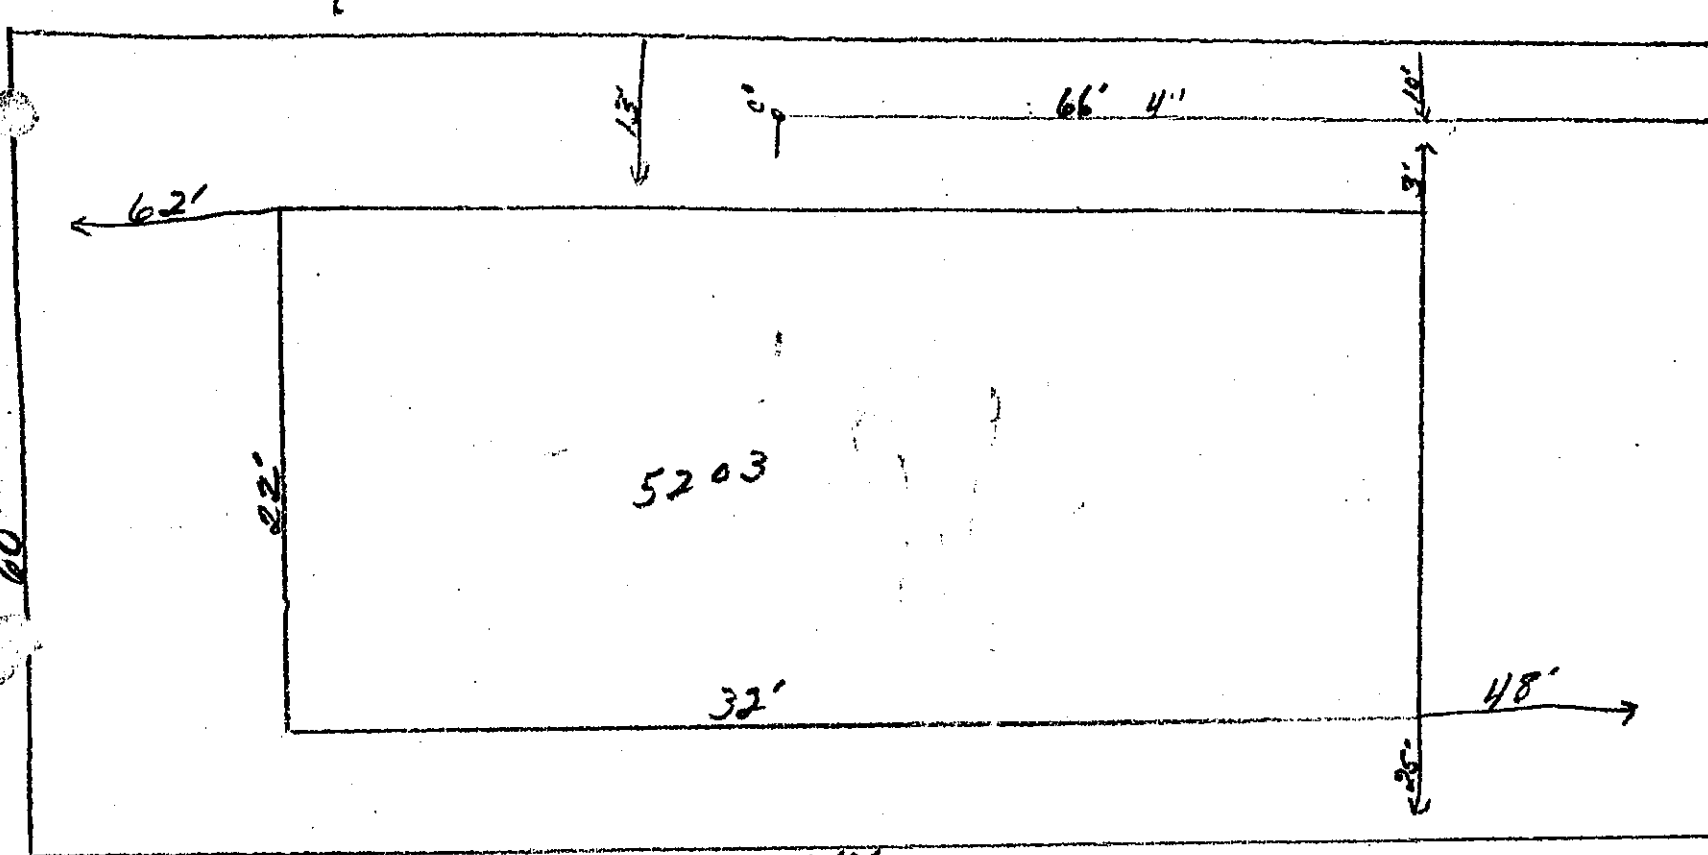 10'
13'
66' 4"
3'
62'
22'
5203
60
32'
48'
25'